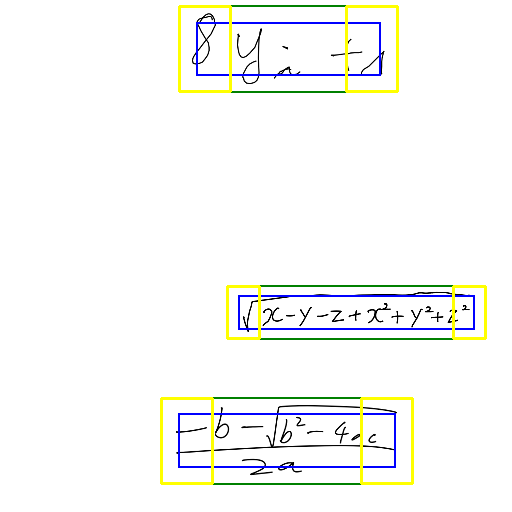 8 y_{i} + 1
\sqrt{x - y - z + x^{2} + y^{2} + z^{2}}
\frac{-b - \sqrt{b^{2} - 4ac}}{2a}